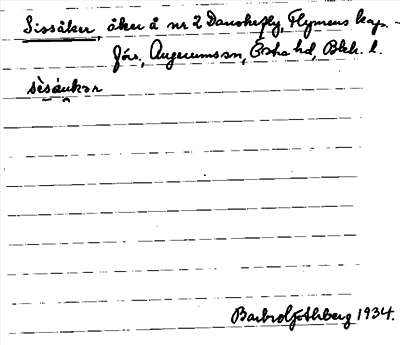 Sissåker, åker å nr 2 Danskefly, Flymens kap-
förs., Augerums sn, Östra hd, Blek. l.
sèsåukər
Barbro Ahlberg 1934.